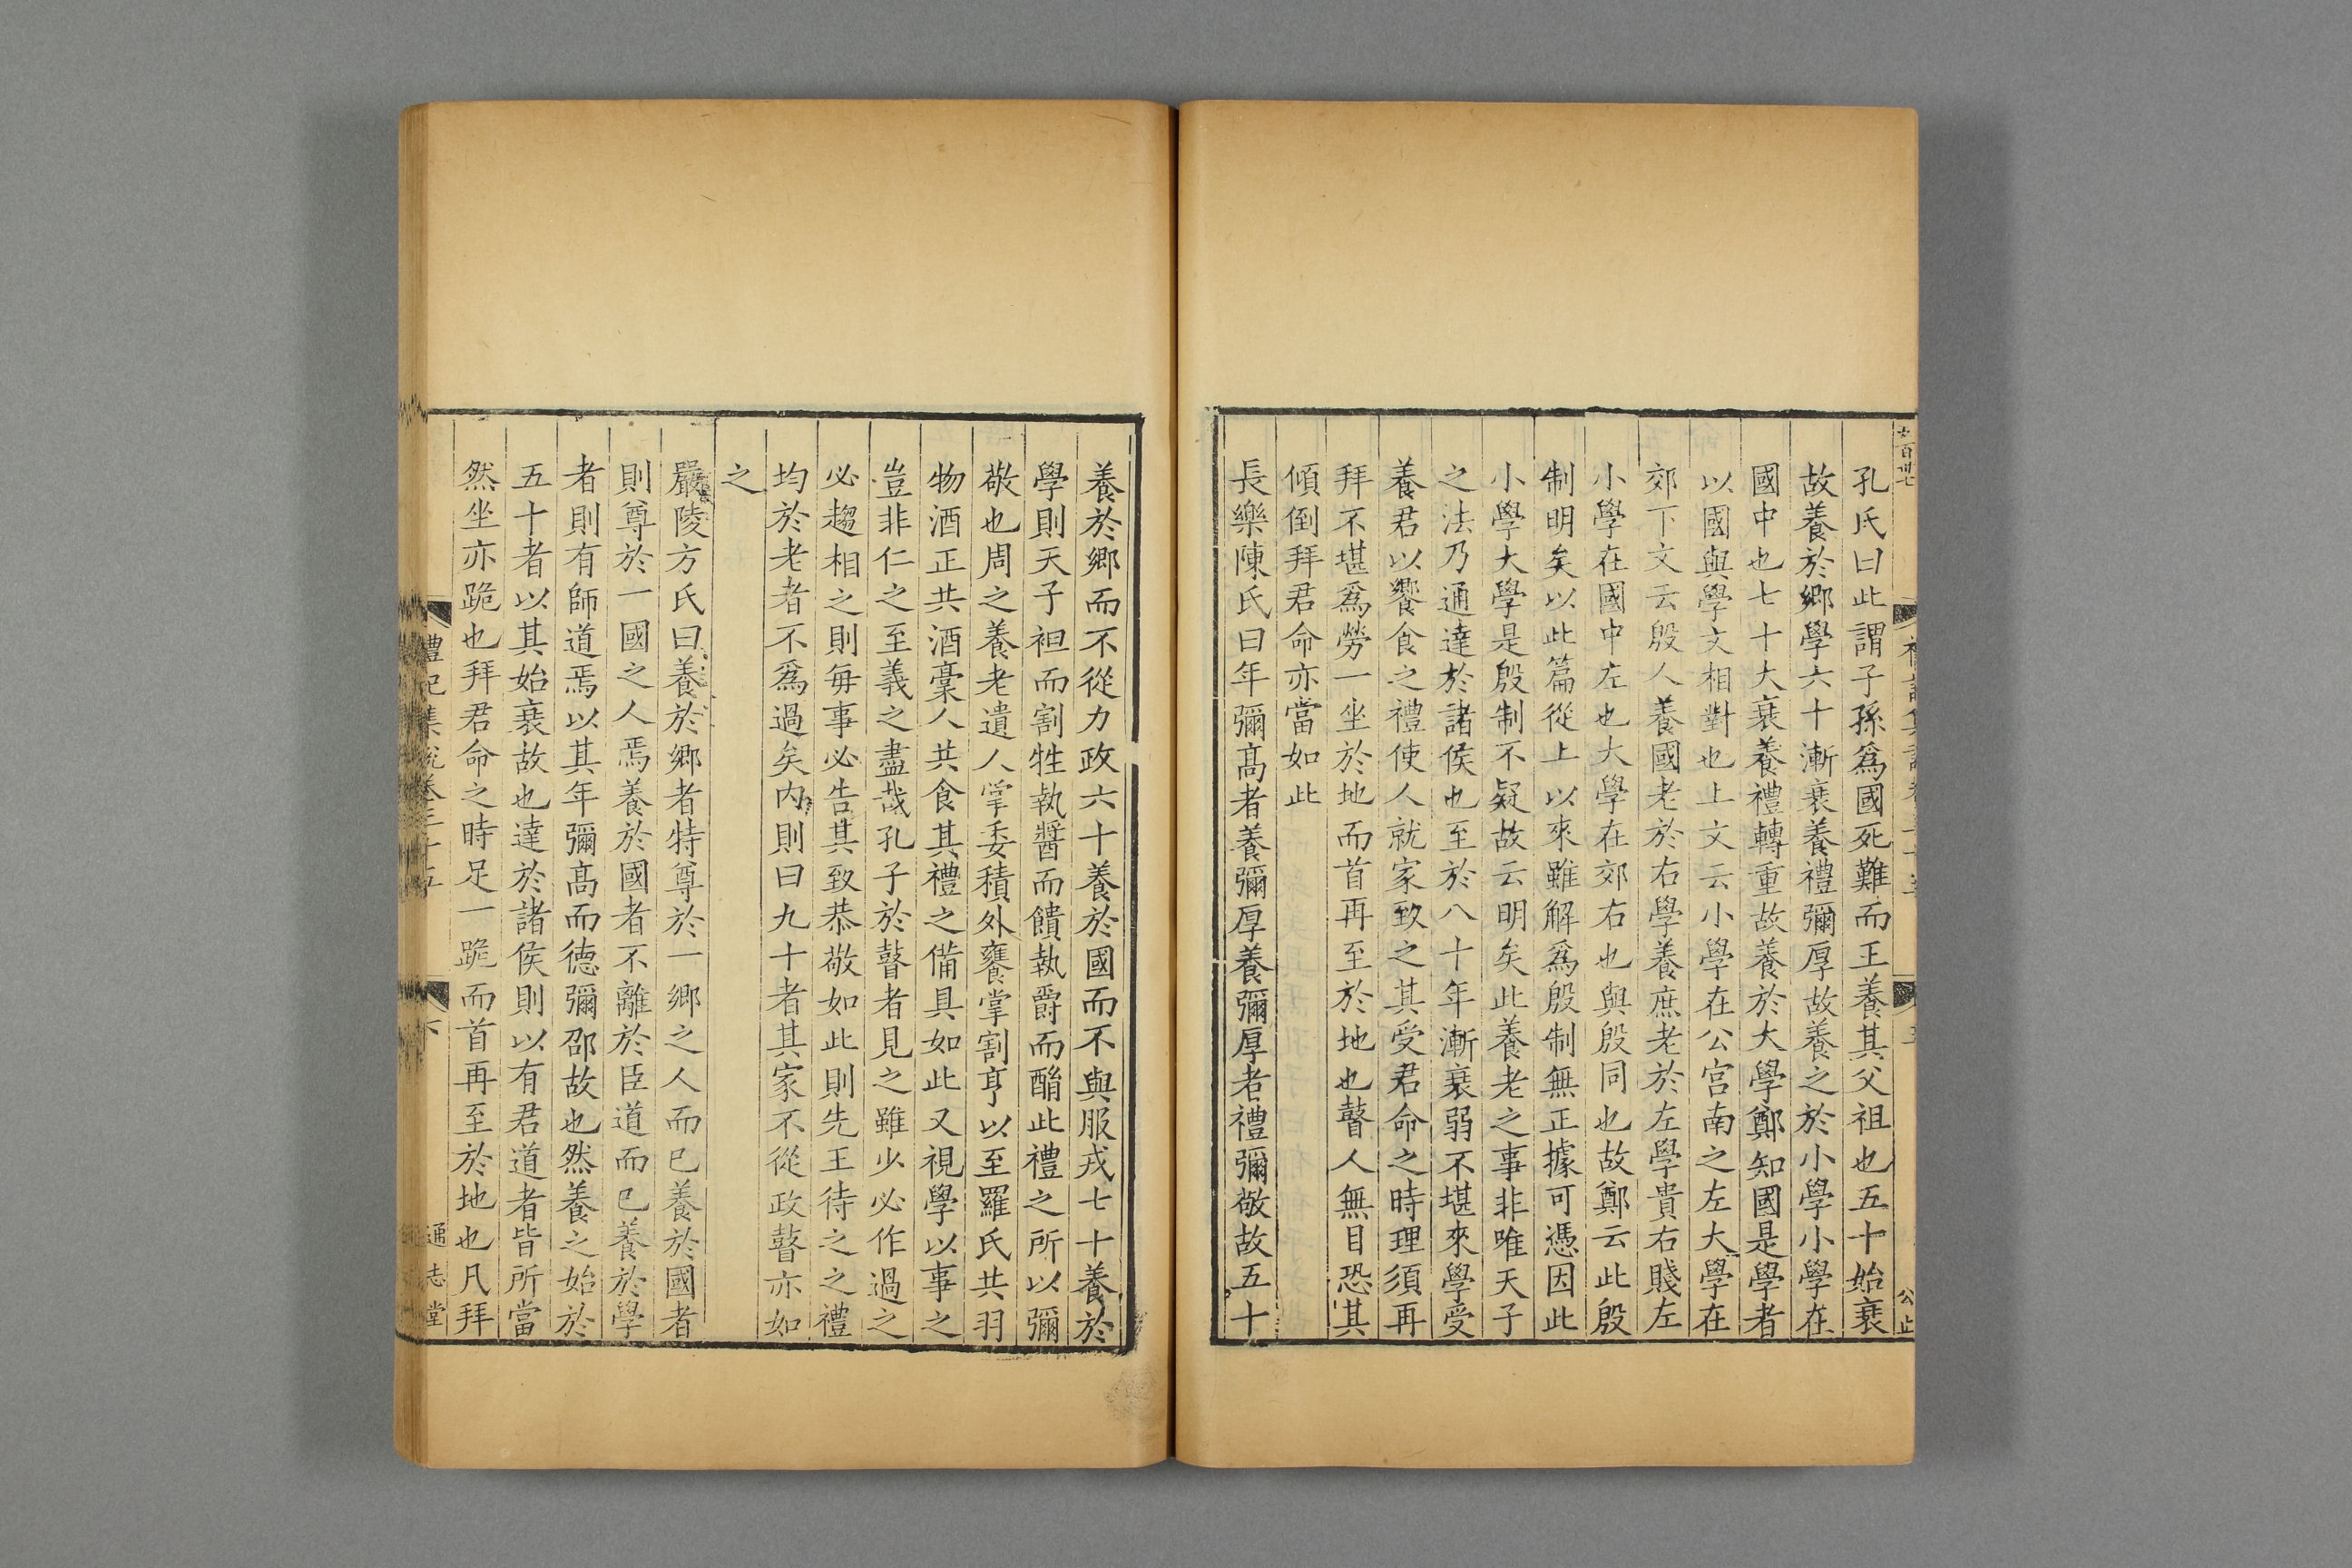 孔氏曰此謂子孫爲國死難而王養其父祖也五十始衰
故養於鄉學六十漸衰養禮彌厚故養之於小學小學在
國中也七十大衰養禮轉重故養於大學鄭知國是學者
以國與學文相對也上文云小學在公宮南之左大學在
郊下文云殷人養國老於右學養庶老於左學貴右賤左
小學在國中左也大學在郊右也與殷同也故鄭云此殷
制明矣以此篇從上以來雖解爲殷制無正據可憑因此
小學大學是殷制不疑故云明矣此養老之事非唯天子
之法乃通達於諸侯也至於八十年漸衰弱不堪來學受
養君以饗食之禮使人就家致之其受君命之時理須再
拜不堪爲勞一坐於地而首再至於地也瞽人無目恐其
傾倒拜君命亦當如此
長樂陳氏曰年彌髙者養彌厚養彌厚者禮彌敬故五十
養於鄉而不從力政六十養於國而不與服戎七十養於
學則天子袒而割牲執醬而饋執爵而酳此禮之所以彌
敬也周之養老遺人掌委積外饔掌割亨以至羅氏共羽
物酒正共酒槀人共食其禮之備具如此又視學以事之
豈非仁之至義之盡哉孔子於瞽者見之雖少必作過之
必趨相之則每事必告其致恭敬如此則先王待之之禮
均於老者不爲過矣内則曰九十者其家不從政瞽亦如
之
嚴陵方氏曰養於鄉者特尊於一鄉之人而已養於國者
則尊於一國之人焉養於國者不離於臣道而已養於學
者則有師道焉以其年彌髙而德彌邵故也然養之始於
五十者以其始衰故也達於諸侯則以有君道者皆所當
然坐亦跪也拜君命之時足一跪而首再至於地也凡拜
禮記集說卷三十五
通志堂